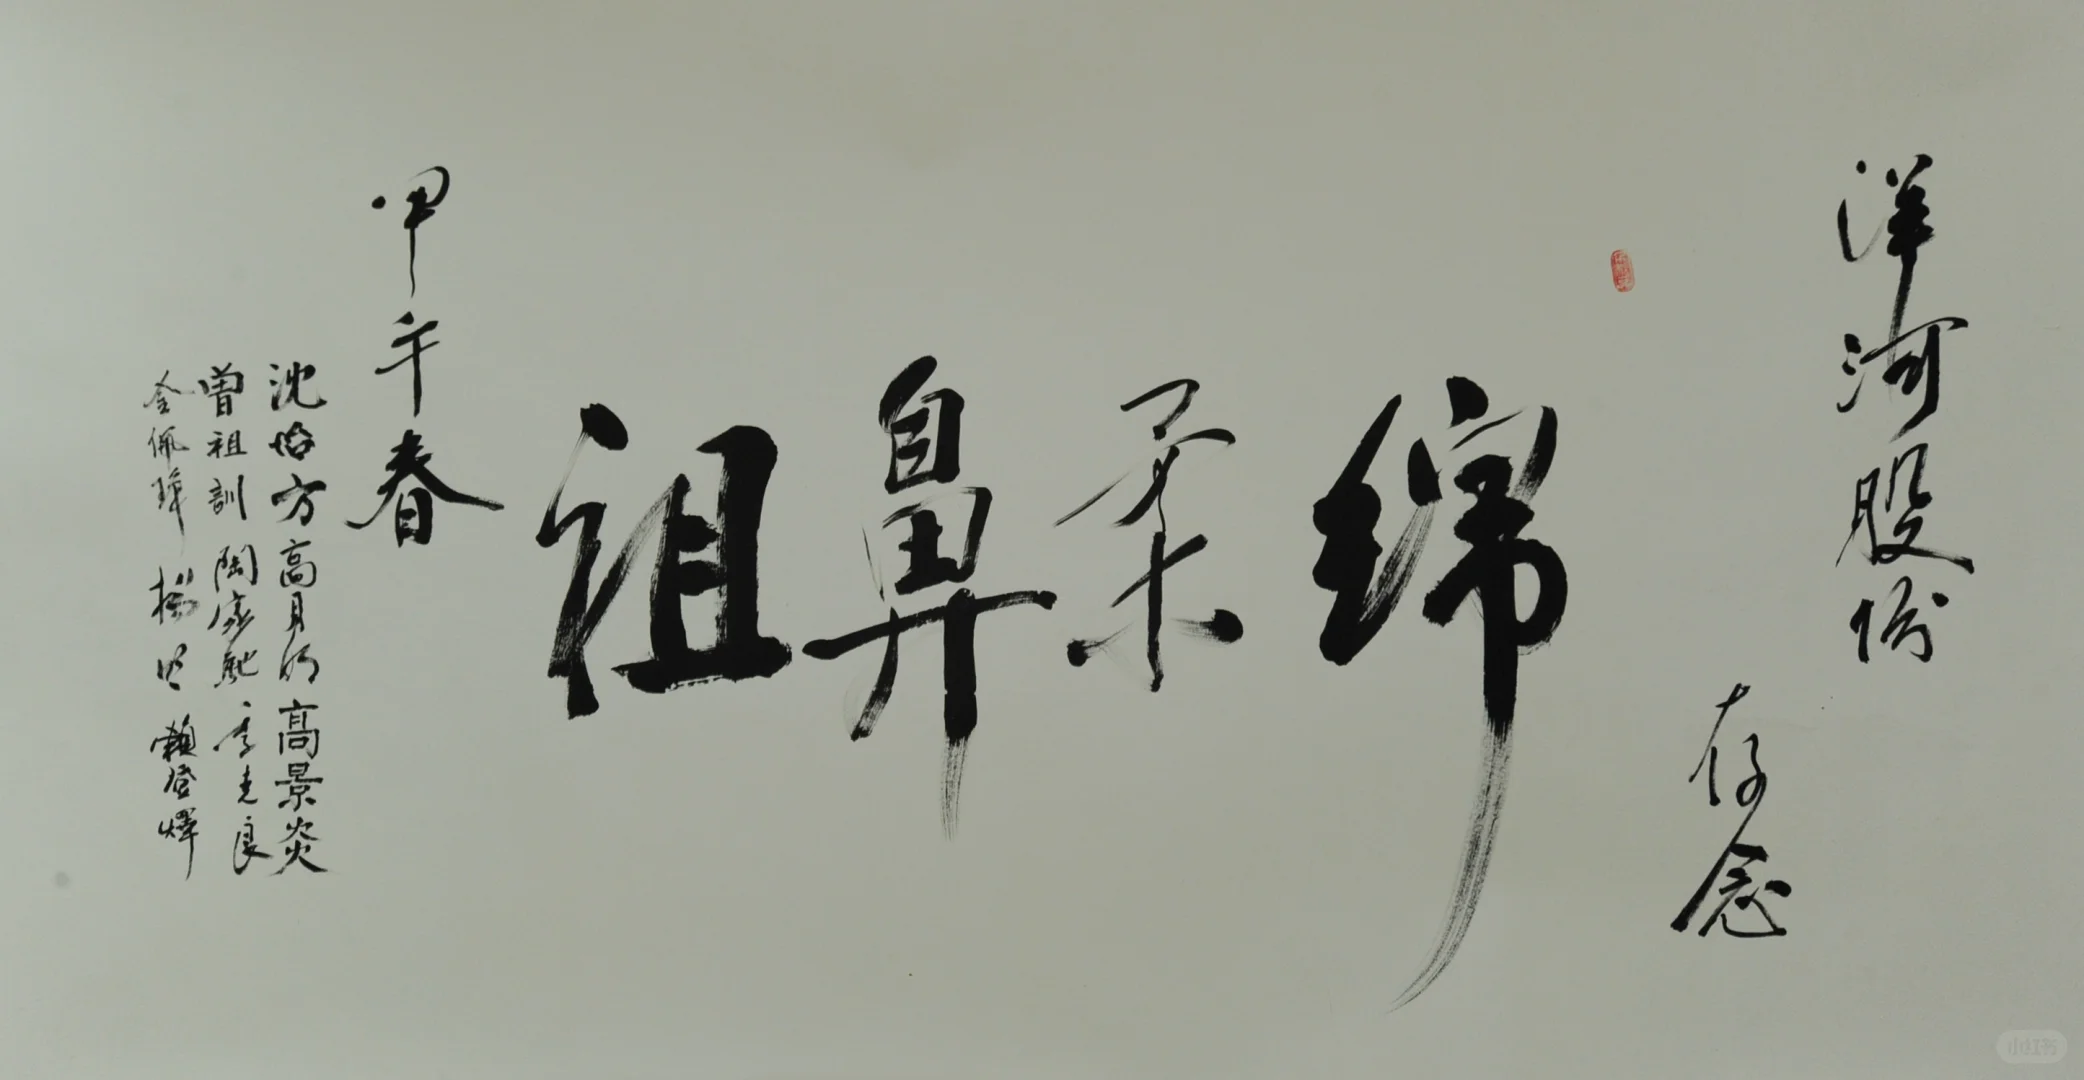 洋河股份
存念
绵柔鼻祖
甲午春
沈怡方 高月明 高景炎
曾祖训 陶家驰 季克良
金佩璋 杨 赖登燡
小红书